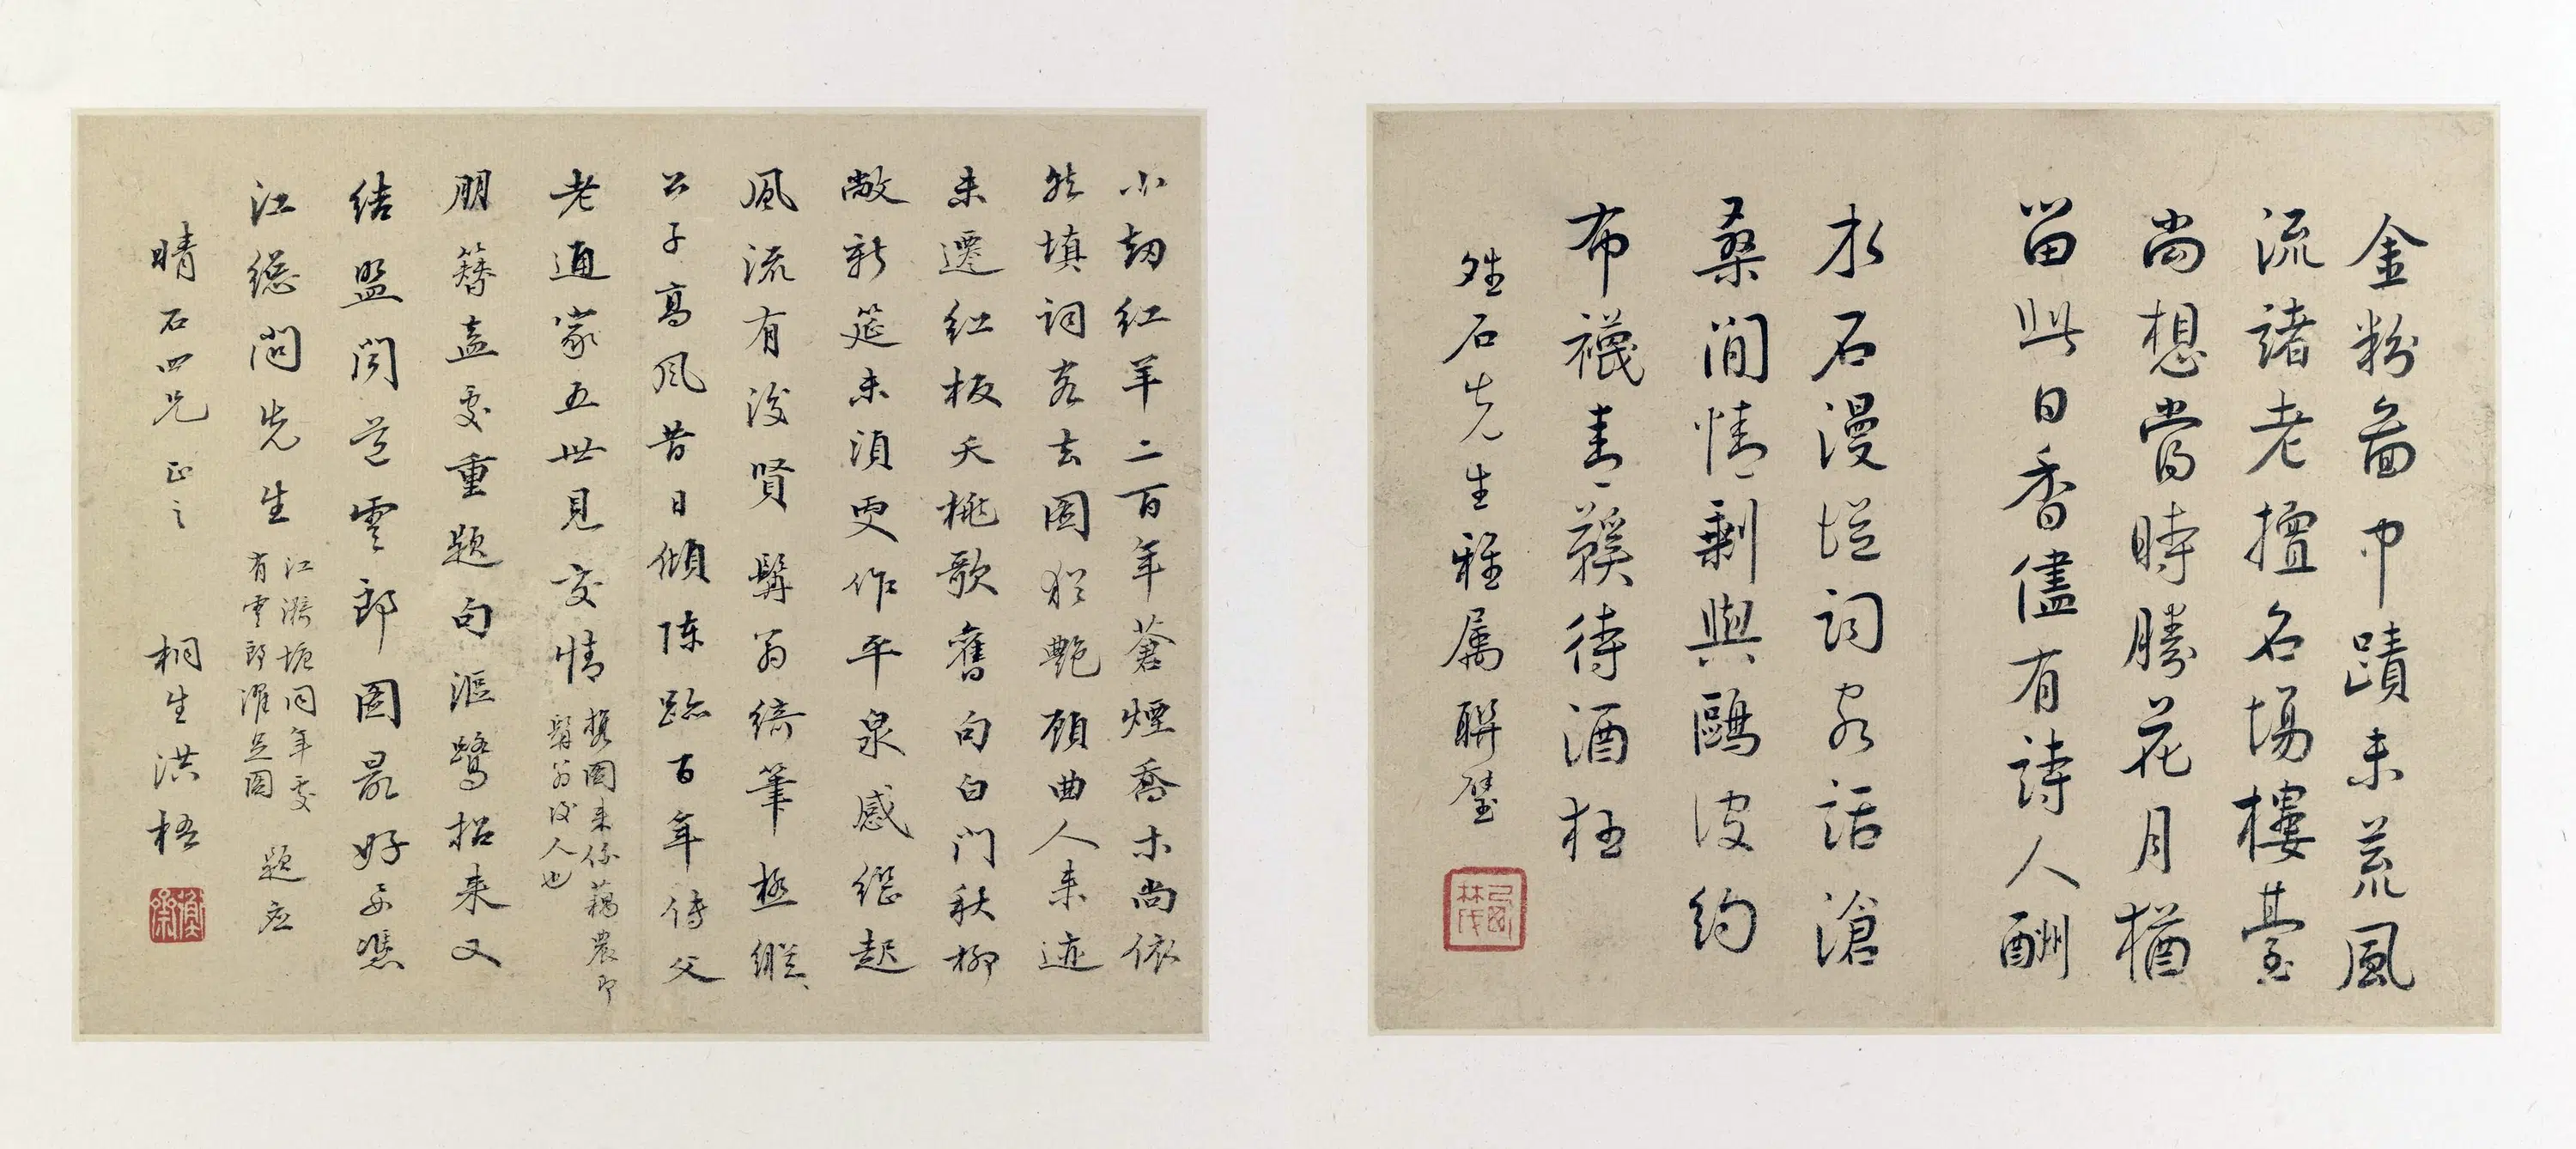 金粉畨巾蹟未荒風
流諸老擅名場樓臺
尚想當時勝花月猶
留此日香儘有詩人酬
水石漫從詞客話滄
桑閒情剩與鷗波約
布襪青鞵待酒狂
姓石先生雅属 聯璧
小劫紅羊二百年蒼煙喬木尚依
然填詞客去圖猶艷顧曲人來迹
未遷紅板夭桃歌舊句白門秋柳
敞新筵未須更作平泉感繼起
風流有後賢 髯翁綺筆極縱
公子高風昔日傾陳跡百年傳父
老通家五世見交情 携圖來係藕農即
髯翁後人也
朋簪盍處重題句漚鷺招來又
結盟聞道雲郎圖最好好憑
江總問先生 江
同年處
有雲郎濯足圖 題應
晴石四兄正之 桐生洪梧